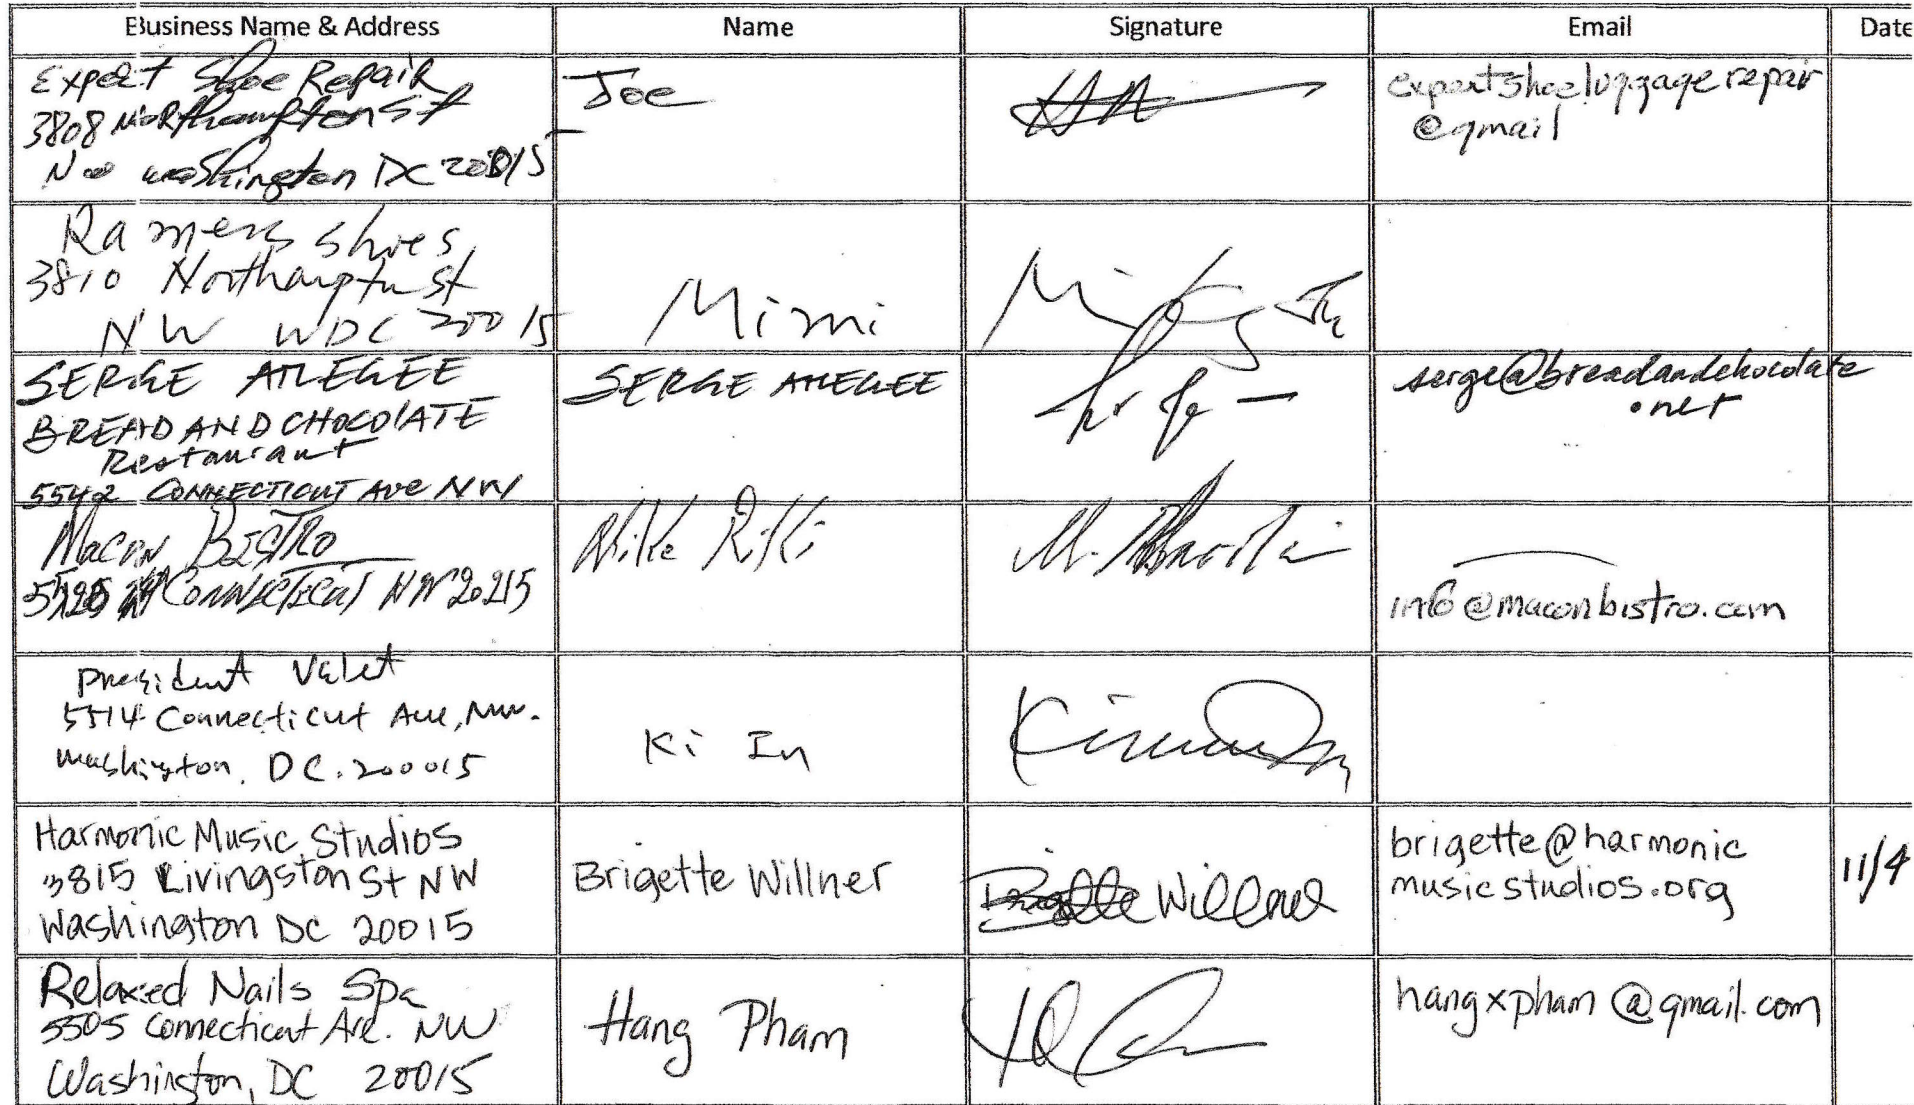 Business Name & Address
Name
Signature
Email
Date
Expert Shoe Repair
3808 Northampton St
NW Washington DC 20015
Joe
expertshoeluggagerepair
@gmail
Ramers shoes
3810 Northampton St
NW WDC 20015
Mimi
SERGE
BREAD AND CHOCOLATE
Restaurant
5542 CONNECTICUT AVE NW
SERGE
serge@breadandchocolate
.net
Macon BISTRO
CONNECTICUT NW 20215
Mike
info@maconbistro.com
President Valet
5514 Connecticut Ave, NW.
Washington, DC. 200015
Ki In
Harmonic Music Studios
3815 Livingston St NW
Washington DC 20015
Brigette Willner
Brigette Willner
brigette@harmonic
musicstudios.org
11/4
Relaxed Nails Spa
5505 Connecticut Ave. NW
Washington, DC 20015
Hang Pham
hangxpham@gmail.com